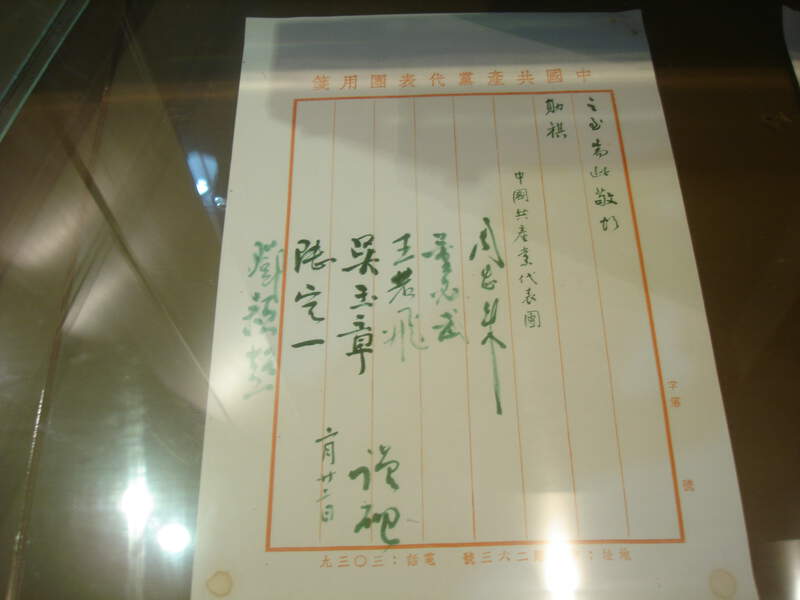 中國共產黨代表團用箋
之至崙此敬頌
勛祺
中國共產黨代表團
周恩來
董必武
王若飛
吳玉章
陸定一
鄧穎超
謹啟
二月廿二日
字第
號
地址：
二六三號
電話：三〇三九